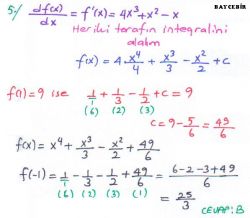 BAYCEBİR
5-/ df(x)/dx = f'(x) = 4x³+x²-x
Her iki tarafın integralini
alalım
f(x) = 4 x⁴/4 + x³/3 - x²/2 + c
f(1)=9 ise 1/1 + 1/3 - 1/2 + c = 9
(6) (2) (3)
c = 9 - 5/6 = 49/6
f(x) = x⁴ + x³/3 - x²/2 + 49/6
f(-1) = 1/1 - 1/3 - 1/2 + 49/6 = (6-2-3+49)/6
(6) (2) (3) (1)
= 25/3
CEVAP: B